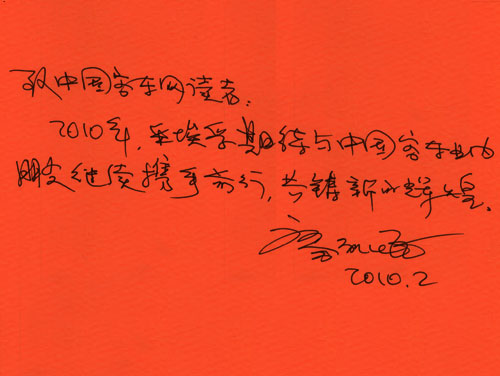 致中国客车网读者:
2010年,采埃孚期待与中国客车业的
朋友继续携手前行,共铸新的辉煌。
2010.2